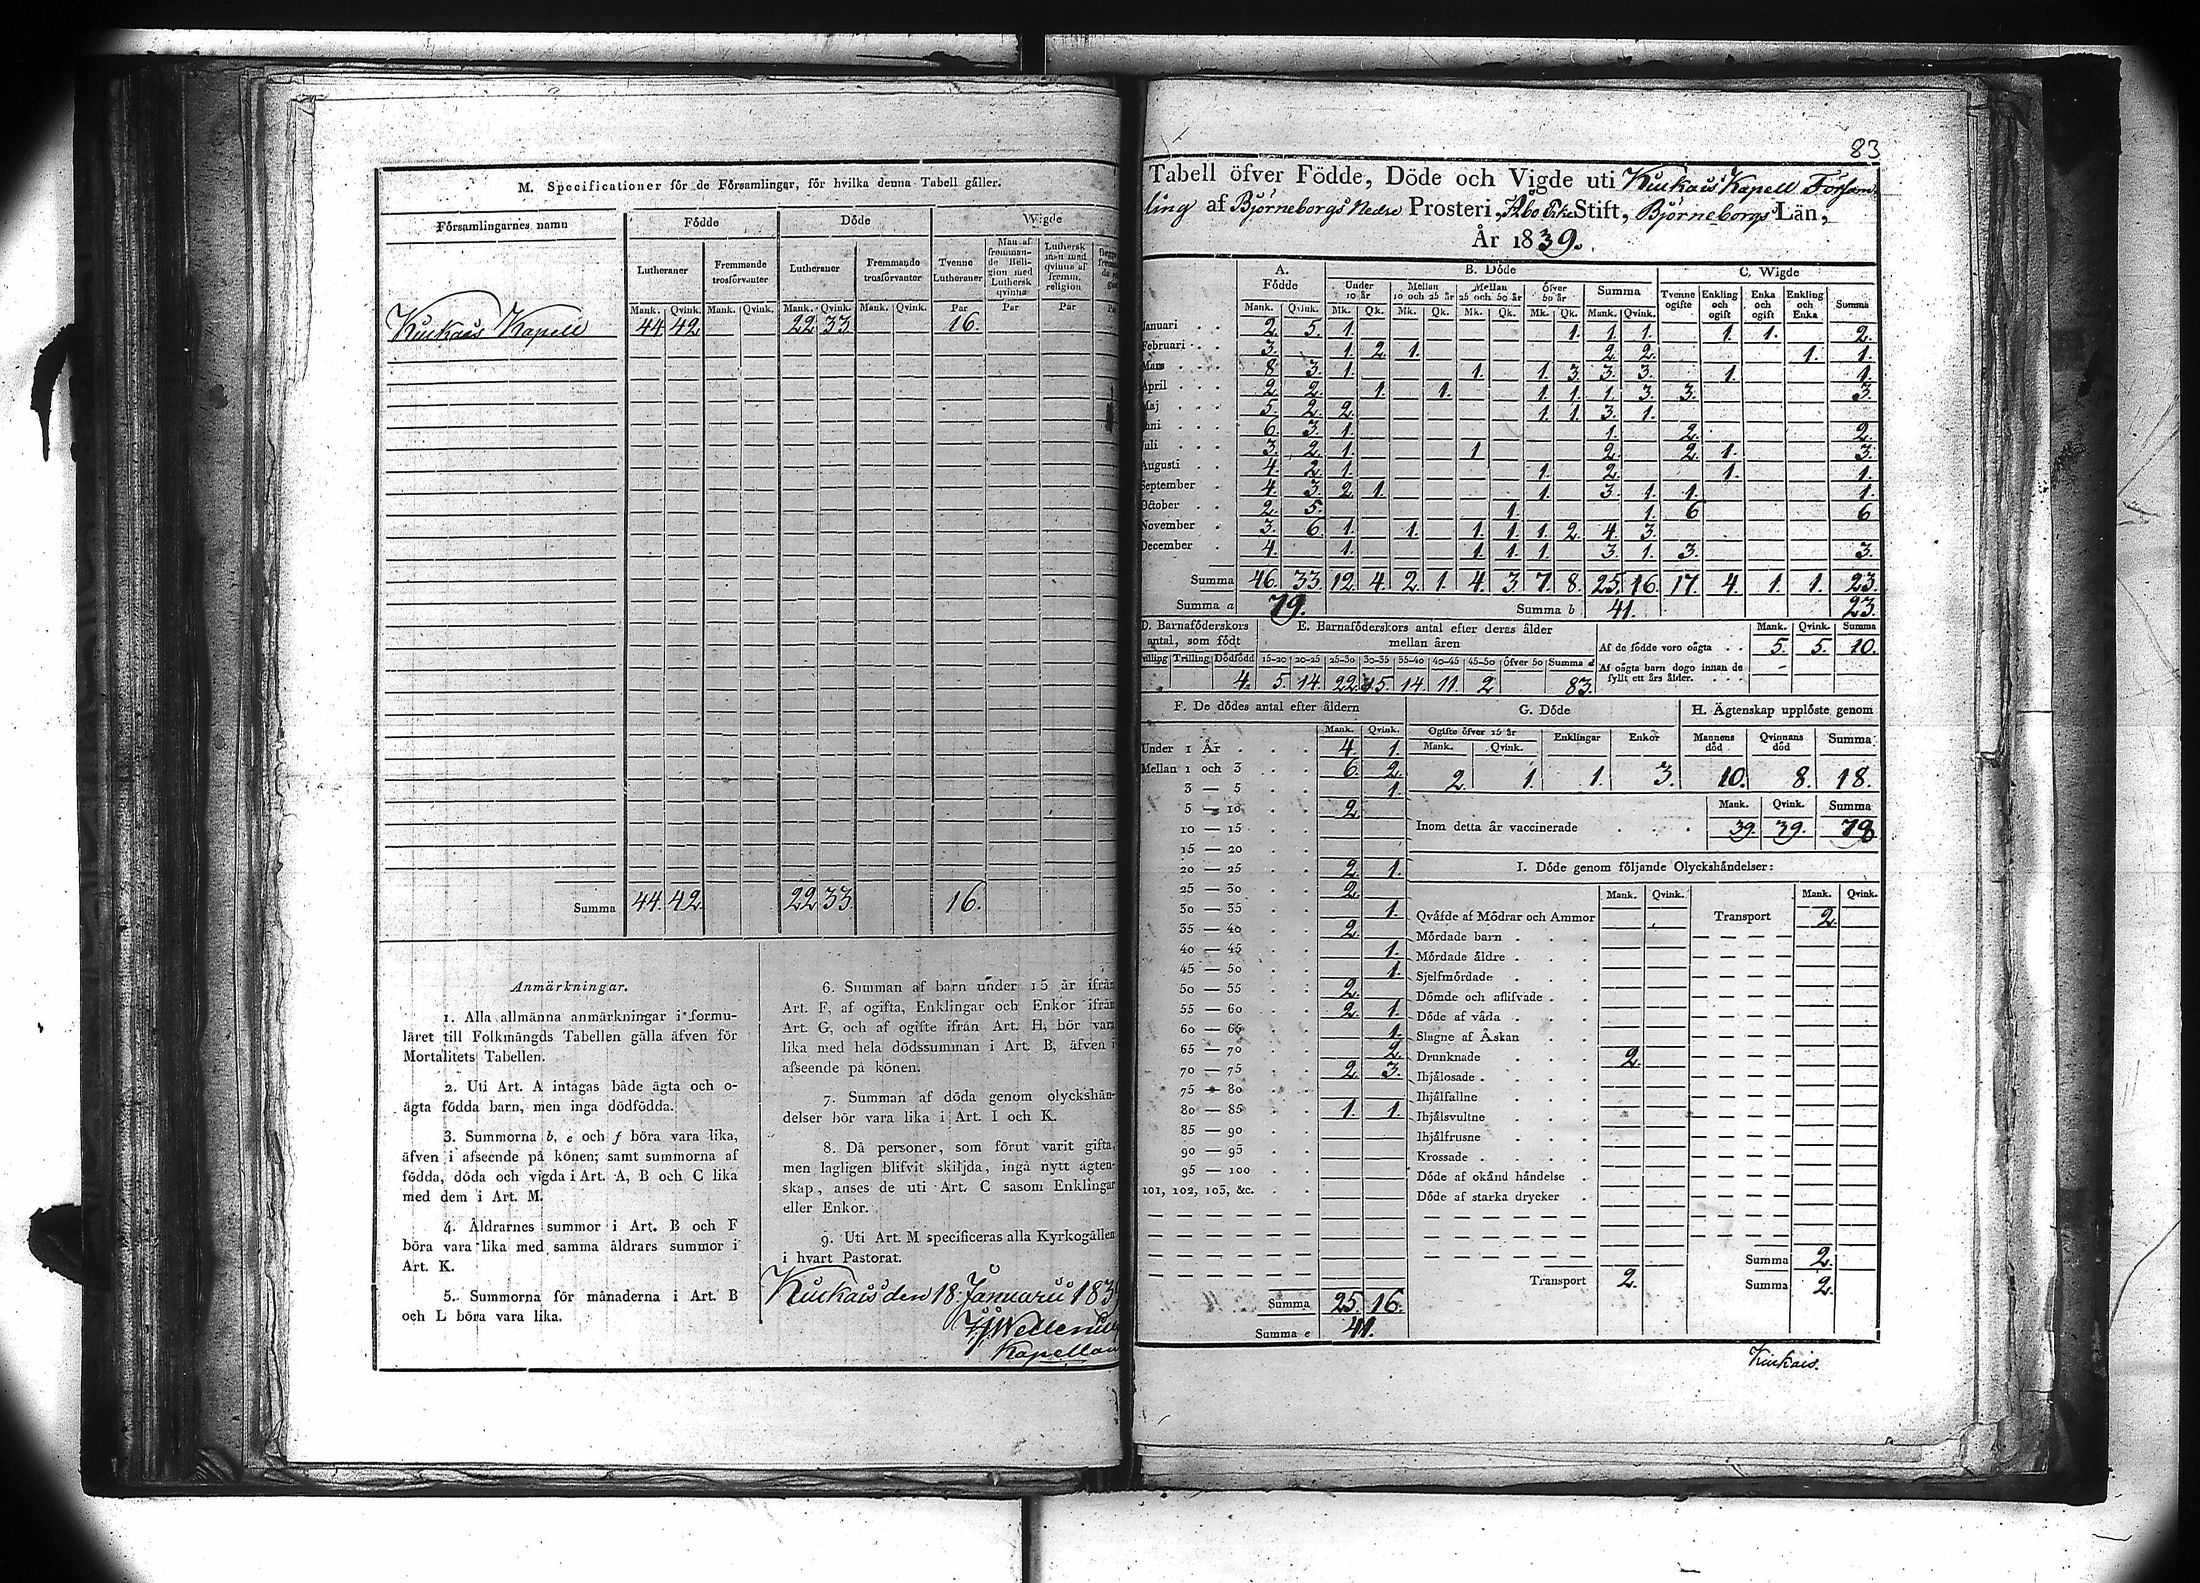 M. Specificationer för de Församlingar, för hvilka denna Tabell gäller.
Församlingarnes namn Födde Döde Wigde
Lutheraner Fremmande trosförvanter Lutheraner Fremmande trosförvanter Tvenne Lutheraner Man af fremmande Religion med Luthersk qvinna Luthersk man med qvinna af fremm. religion
Mank. Qvink. Mank. Qvink. Mank. Qvink. Mank. Qvink. Par Par Par
Kiukais Kapell 44 42. 22 33 16.
Summa 44. 42. 22 33. 16.
Anmärkningar.
1. Alla allmänna anmärkningar i formu-
läret till Folkmängds Tabellen gälla äfven för
Mortalitets Tabellen.
2. Uti Art. A intagas både ägta och o-
ägta födda barn, men inga dödfödda.
3. Summorna b, e och f böra vara lika,
äfven i afseende på könen; samt summorna af
födda, döda och vigda i Art. A, B och C lika
med dem i Art. M.
4. Åldrarnes summor i Art. B och F
böra vara lika med samma åldrars summor i
Art. K.
5. Summorna för månaderna i Art. B
och L böra vara lika.
6. Summan af barn under 15 år ifrån
Art. F, af ogifta, Enklingar och Enkor ifrån
Art. G, och af ogifte ifrån Art. H, bör vara
lika med hela dödssumman i Art. B, äfven i
afseende på könen.
7. Summan af döda genom olyckshän-
delser bör vara lika i Art. I och K.
8. Då personer, som förut varit gifta,
men lagligen blifvit skiljda, ingå nytt ägten-
skap, anses de uti Art. C såsom Enklingar
eller Enkor.
9. Uti Art. M specificeras alla Kyrkogällen
i hvart Pastorat.
Kiukais den 18 Januarii 1839
Kapellan
83
Tabell öfver Födde, Döde och Vigde uti Kiukais Kapell Församl
ling af Björneborgs Nedre Prosteri, Åbo Erke Stift, Björneborgs Län,
År 1839.
A. Födde B. Döde C. Wigde
Under 10 år Mellan 10 och 25 år Mellan 25 och 50 år öfver 50 år Summa Tvenne ogifte Enkling och ogift Enka och ogift Enkling och Enka Summa
Mank. Qvink. Mk. Qk. Mk. Qk. Mk. Qk. Mk. Qk. Mank. Qvink.
Januari 2. 5. 1. 1. 1. 1. 1. 1. 2.
Februari 3. 1. 2. 1. 2. 2. 1. 1.
Mars 8. 3. 1. 1. 1. 3. 3. 3. 1. 1.
April 2. 2. 1. 1. 1. 1. 1. 3. 3. 3.
Maj 5. 2. 2. 1. 1. 3. 1.
Juni 6. 3. 1. 1. 2. 2.
Juli 3. 2. 1. 1 2. 2. 1. 3.
Augusti 4. 2. 1. 1. 2. 1. 1.
September 4. 3. 2. 1. 1. 3. 1. 1. 1.
October 2. 5. 1. 1. 6 6
November 3. 6. 1. 1. 1. 1. 1. 2. 4. 3.
December 4. 1. 1. 1. 1. 3. 1. 3. 3.
Summa 46. 33. 12. 4. 2. 1. 4. 3. 7. 8. 25. 16. 17. 4. 1. 1. 23.
Summa a 79. Summa b 41. 23.
D. Barnaföderskors antal, som födt
Tvilling Trilling Dödfödd
4.
E. Barnaföderskors antal efter deras ålder mellan åren
15-20 20-25 25-30 30-35 35-40 40-45 45-50 öfver 50 Summa d
5. 14. 22. 15. 14. 11. 2 83.
Mank. Qvink. Summa
Af de födde voro oägta 5. 5. 10.
Af oägta barn dogo innan de fyllt ett års ålder.
F. De dödes antal efter åldern
Mank. Qvink.
Under 1 År 4. 1.
Mellan 1 och 3 6. 2.
3 — 5 1.
5 — 10 2.
10 — 15
15 — 20
20 — 25 2. 1.
25 — 30 2.
30 — 35 1.
35 — 40 2.
40 — 45 1.
45 — 50 1.
50 — 55 2.
55 — 60 2. 1.
60 — 65 1.
65 — 70 2.
70 — 75 2. 3.
75 — 80
80 — 85 1. 1.
85 — 90
90 — 95
95 — 100
101, 102, 103, &c.
Summa 25. 16.
Summa e 41.
G. Döde
Ogifte öfver 15 år Enklingar Enkor
Mank. Qvink.
2. 1. 1. 3.
H. Ägtenskap upplöste genom
Mannens död Qvinnans död Summa
10. 8. 18.
Mank. Qvink. Summa
Inom detta år vaccinerade 39. 39. 78
I. Döde genom följande Olyckshändelser:
Mank. Qvink. Mank. Qvink.
Qväfde af Mödrar och Ammor Transport 2.
Mördade barn
Mördade äldre
Sjelfmördade
Dömde och aflifvade
Döde af våda
Slagne af Åskan
Drunknade 2.
Ihjälosade
Ihjälfallne
Ihjälsvultne
Ihjälfrusne
Krossade
Döde af okänd händelse
Döde af starka drycker
Summa 2.
Transport 2. Summa 2.
Kiukais.